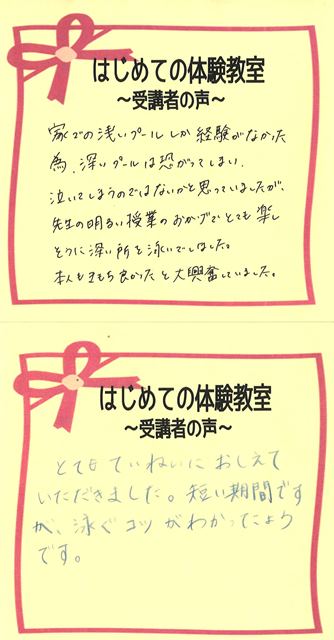 はじめての体験教室
～受講者の声～
家での浅いプールしか経験がなかった
為、深いプールは恐がってしまい、
泣いてしまうのではないかと思っていましたが、
先生の明るい授業のおかげでとても楽し
そうに深い所を泳いでいました。
本人も気もち良かったと大興奮していました。
はじめての体験教室
～受講者の声～
とてもていねいにおしえて
いただきました。短い期間です
が、泳ぐコツがわかったよう
です。